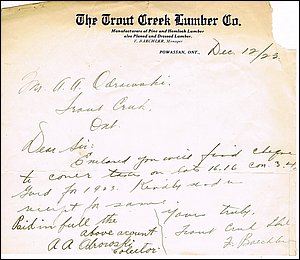 The Trout Creek Lumber Co.
Manufacturers of Pine and Hemlock Lumber
also Planed and Dressed Lumber.
POWASSAN, ONT., Dec 12/23
Mr. A. A. Odrowski.
Trout Creek.
Ont
Dear Sir:
Enclosed you will find cheque
to cover taxes on lots 16.16 con. 3.4
for 1923. Kindly send
receipt for same
Yours truly,
Trout Creek
Paid in full the
above account
A A Odrowski
Collector